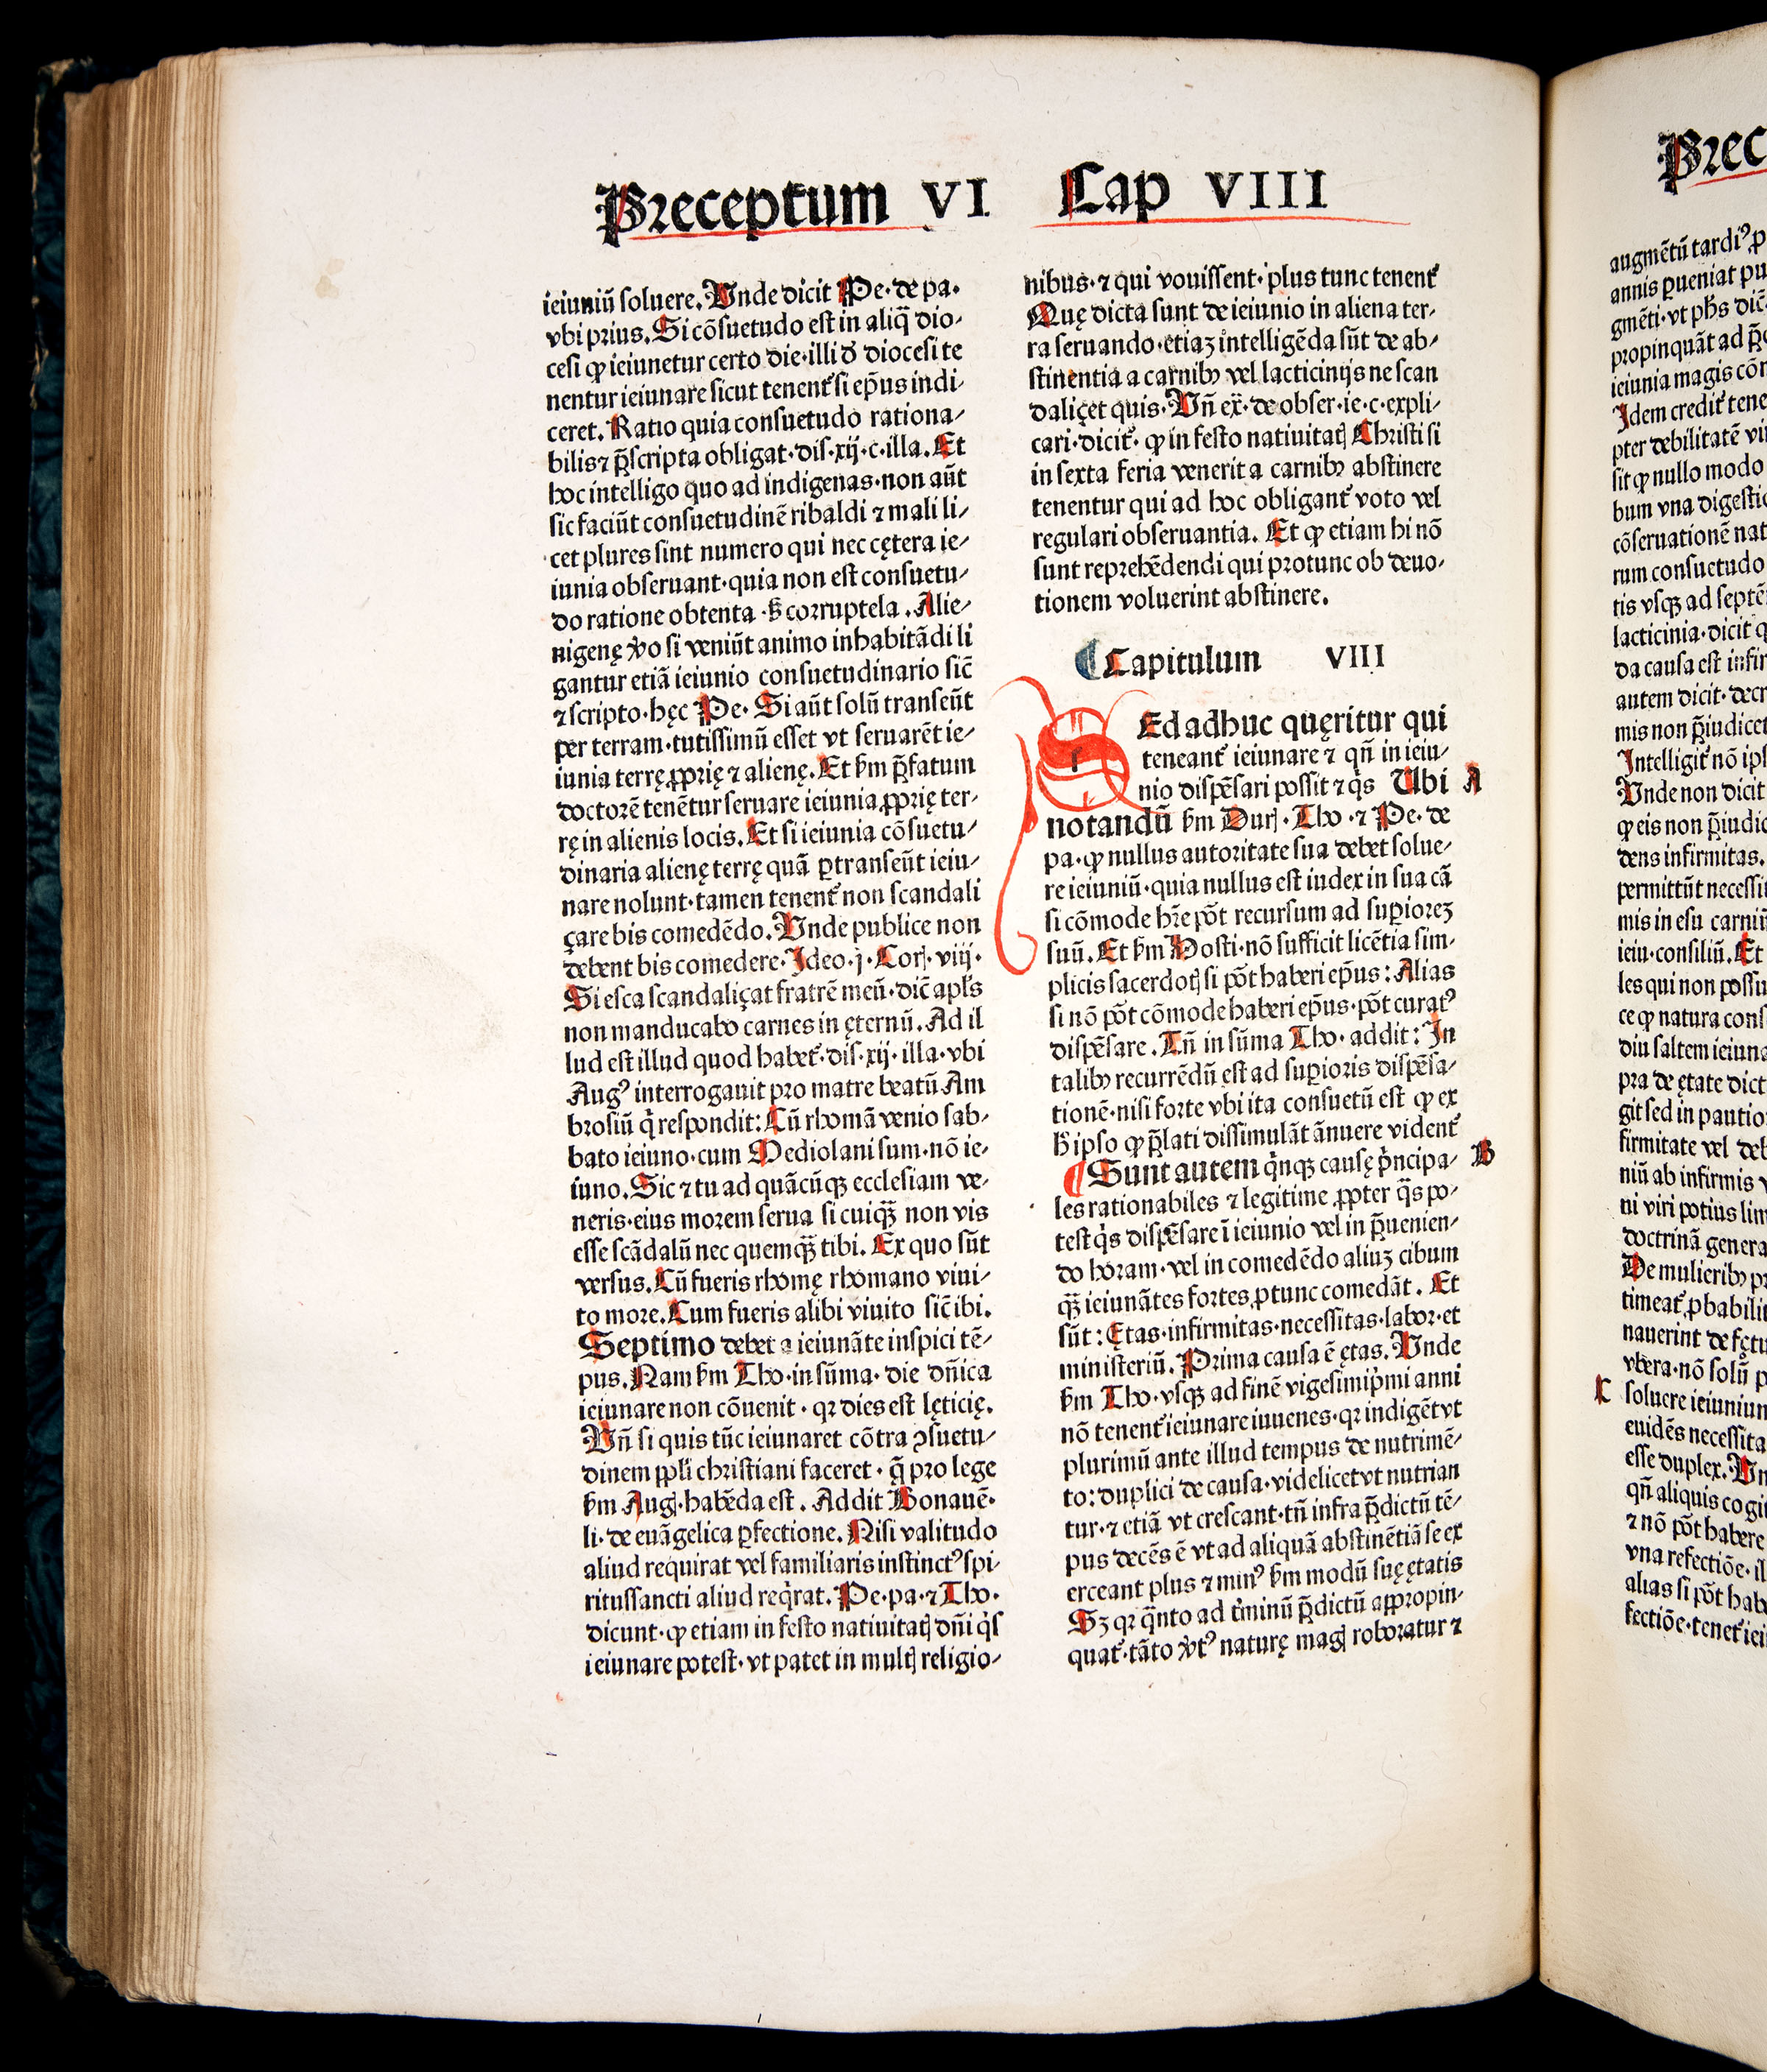 Preceptum VI Cap VIII
ieiuniū soluere. Vnde dicit Pe· de pa·
vbi prius. Si cōsuetudo est in aliq̄ dio-
cesi ꝙ ieiunetur certo die·illi ð diocesi te
nentur ieiunare sicut tenent᷑ si ep̄us indi-
ceret. Ratio quia consuetudo rationa-
bilis ⁊ p̄scripta obligat·dis·xij·c·illa. Et
hoc intelligo quo ad indigenas·non aūt
sic faciūt consuetudinē ribaldi ⁊ mali li-
cet plures sint numero qui nec cętera ie-
iunia obseruant·quia non est consuetu-
do ratione obtenta ·ß corruptela. Alie-
nigenę ꝟo si veniūt animo inhabitādi li
gantur etiā ieiunio consuetudinario sic̄
⁊ scripto·hęc Pe· Si aūt solū transeūt
per terram·tutissimū esset vt seruarēt ie-
iunia terrę ꝓprię ⁊ alienę. Et ẜm p̄fatum
doctorē tenētur seruare ieiunia ꝓprię ter-
rę in alienis locis. Et si ieiunia cōsuetu-
dinaria alienę terrę quā ꝑtranseūt ieiu-
nare nolunt·tamen tenent᷑ non scandali
çare bis comedēdo. Vnde publice non
debent bis comedere· Ideo·j·Corꝭ·viij·
Si esca scandaliçat fratrē meū·dic̄ apl's
non manducabo carnes in ęternū. Ad il
lud est illud quod habet᷑·dis·xij·illa·vbi
Augꝰ interrogauit pro matre beatū Am
brosiū q̇ respondit: Cū rhomā venio sab-
bato ieiuno·cum Mediolani sum·nō ie-
iuno. Sic ⁊ tu ad quācūqꝫ ecclesiam ve-
neris·eius morem serua si cuiqꝫ̄ non vis
esse scādalū nec quemqꝫ̄ tibi. Ex quo sūt
versus. Cū fueris rhomę rhomano viui-
to more. Cum fueris alibi viuito sic̄ ibi.
Septimo debet a ieiunāte inspici tē-
pus. Nam ẜm Tho·in sūma· die dn̄ica
ieiunare non cōuenit · qꝛ dies est lęticię.
Vn̄ si quis tūc ieiunaret cōtra ꝯsuetu-
dinem ppl'i christiani faceret · q̄ pro lege
ẜm Augꝭ·habēda est. Addit Bonauē·
li·de euāgelica ꝑfectione. Nisi valitudo
aliud requirat vel familiaris instinctꝰ spi-
ritussancti aliud req̇rat. Pe·pa·⁊ Tho·
dicunt·ꝙ etiam in festo natiuitatꝭ dn̄i q̇s
ieiunare potest·vt patet in multꝭ religio-
nibus·⁊ qui vouissent·plus tunc tenent᷑
Quę dicta sunt de ieiunio in aliena ter-
ra seruando·etiaꝫ intelligēda sūt de ab-
stinentia a carnibꝰ vel lacticinijs ne scan
daliçet quis. Vn̄ ex̄·de obser·ie·c·expli-
cari·dicit᷑· ꝙ in festo natiuitatꝭ Christi si
in sexta feria venerit a carnibꝰ abstinere
tenentur qui ad hoc obligant᷑ voto vel
regulari obseruantia. Et ꝙ etiam hi nō
sunt reprehēdendi qui protunc ob deuo-
tionem voluerint abstinere.
¶ Capitulum VIII
SEd adhuc quęritur qui
teneant᷑ ieiunare ⁊ qn̄ in ieiu-
nio dispēsari possit ⁊ q̇s Ubi A
notandū ẜm Durꝭ·Tho·⁊ Pe·de
pa·ꝙ nullus autoritate sua debet solue-
re ieiuniū·quia nullus est iudex in sua cā
si cōmode hr̄e pōt recursum ad superioreꝫ
suū. Et ẜm Hosti·nō sufficit licētia sim-
plicis sacerdotꝭ si pōt haberi ep̄us: Alias
si nō pōt cōmode haberi ep̄us·pōt curatꝰ
dispēsare. Tn̄ in sūma Tho·addit: In
talibꝰ recurrēdū est ad suꝑioris dispēsa-
tionē·nisi forte vbi ita consuetū est ꝙ ex
h̄ ipso ꝙ p̄lati dissimulāt ānuere vident᷑
¶ Sunt autem q̇nqꝫ causę ṗncipa- B
les rationabiles ⁊ legitime ꝓpter q̄s po-
test q̇s dispēsare ī ieiunio vel in p̄uenien-
do horam·vel in comedēdo aliuꝫ cibum
qꝫ̄ ieiunātes fortes ꝓtunc comedāt. Et
sūt: Ętas·infirmitas·necessitas·labor·et
ministeriū. Prima causa ē ętas. Vnde
ẜm Tho·vsqꝫ ad finē vigesimiṗmi anni
nō tenent᷑ ieiunare iuuenes·qꝛ indigēt vt
plurimū ante illud tempus de nutrimē-
to: duplici de causa·videlicet vt nutrian
tur·⁊ etiā vt crescant·tn̄ infra p̄dictū tē-
pus decēs ē vt ad aliquā abstinētiā se ex
erceant plus ⁊ minꝰ ẜm modū suę ętatis
Sꝫ qꝛ q̄nto ad t̓minū p̄dictū appropin-
quat᷑·tāto ꝟtꝰ naturę magꝭ roboratur ⁊
Prec
augmētū tardiꝰ
annis ꝑueniat
gmēti·vt ph̄s dic̄
propinquāt ad
ieiunia magis
Idem credit᷑
pter debilitatē
sit ꝙ nullo modo
bum vna
cōseruationē
rum consuetudo
tis vsqꝫ ad
lacticinia·dicit
da causa est
autem dicit·
mis non
Intelligit᷑ nō
Vnde non dicit
ꝙ eis non
dens infirmitas.
permittūt
mis in esu
ieiu·consiliū. Et
les qui non
ce ꝙ natura
diu saltem
pra de ętate
git sed in
firmitate vel
niū ab infirmis
ni viri potius
doctrinā
De mulieribꝰ
timeat᷑
nauerint de
vbera·nō solū
C soluere
euidēs
esse duplex.
qn̄ aliquis
⁊ nō pōt habere
vna refectiōe·
alias si pōt
fectiōe·tenet᷑